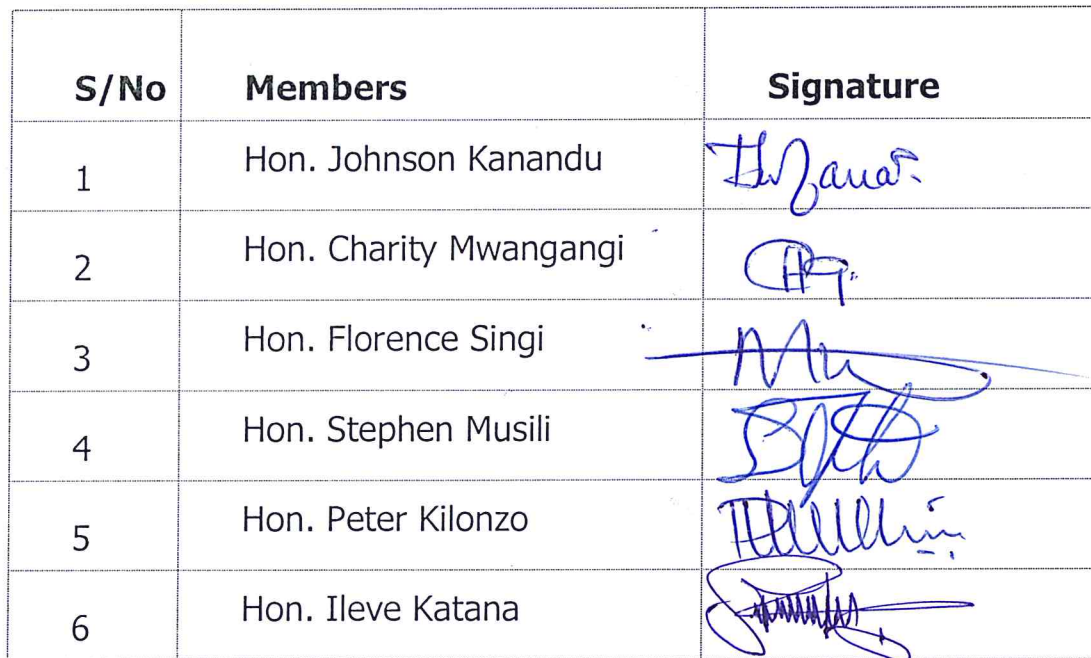 S/No Members Signature
1 Hon. Johnson Kanandu
2 Hon. Charity Mwangangi
3 Hon. Florence Singi
4 Hon. Stephen Musili
5 Hon. Peter Kilonzo
6 Hon. Ileve Katana